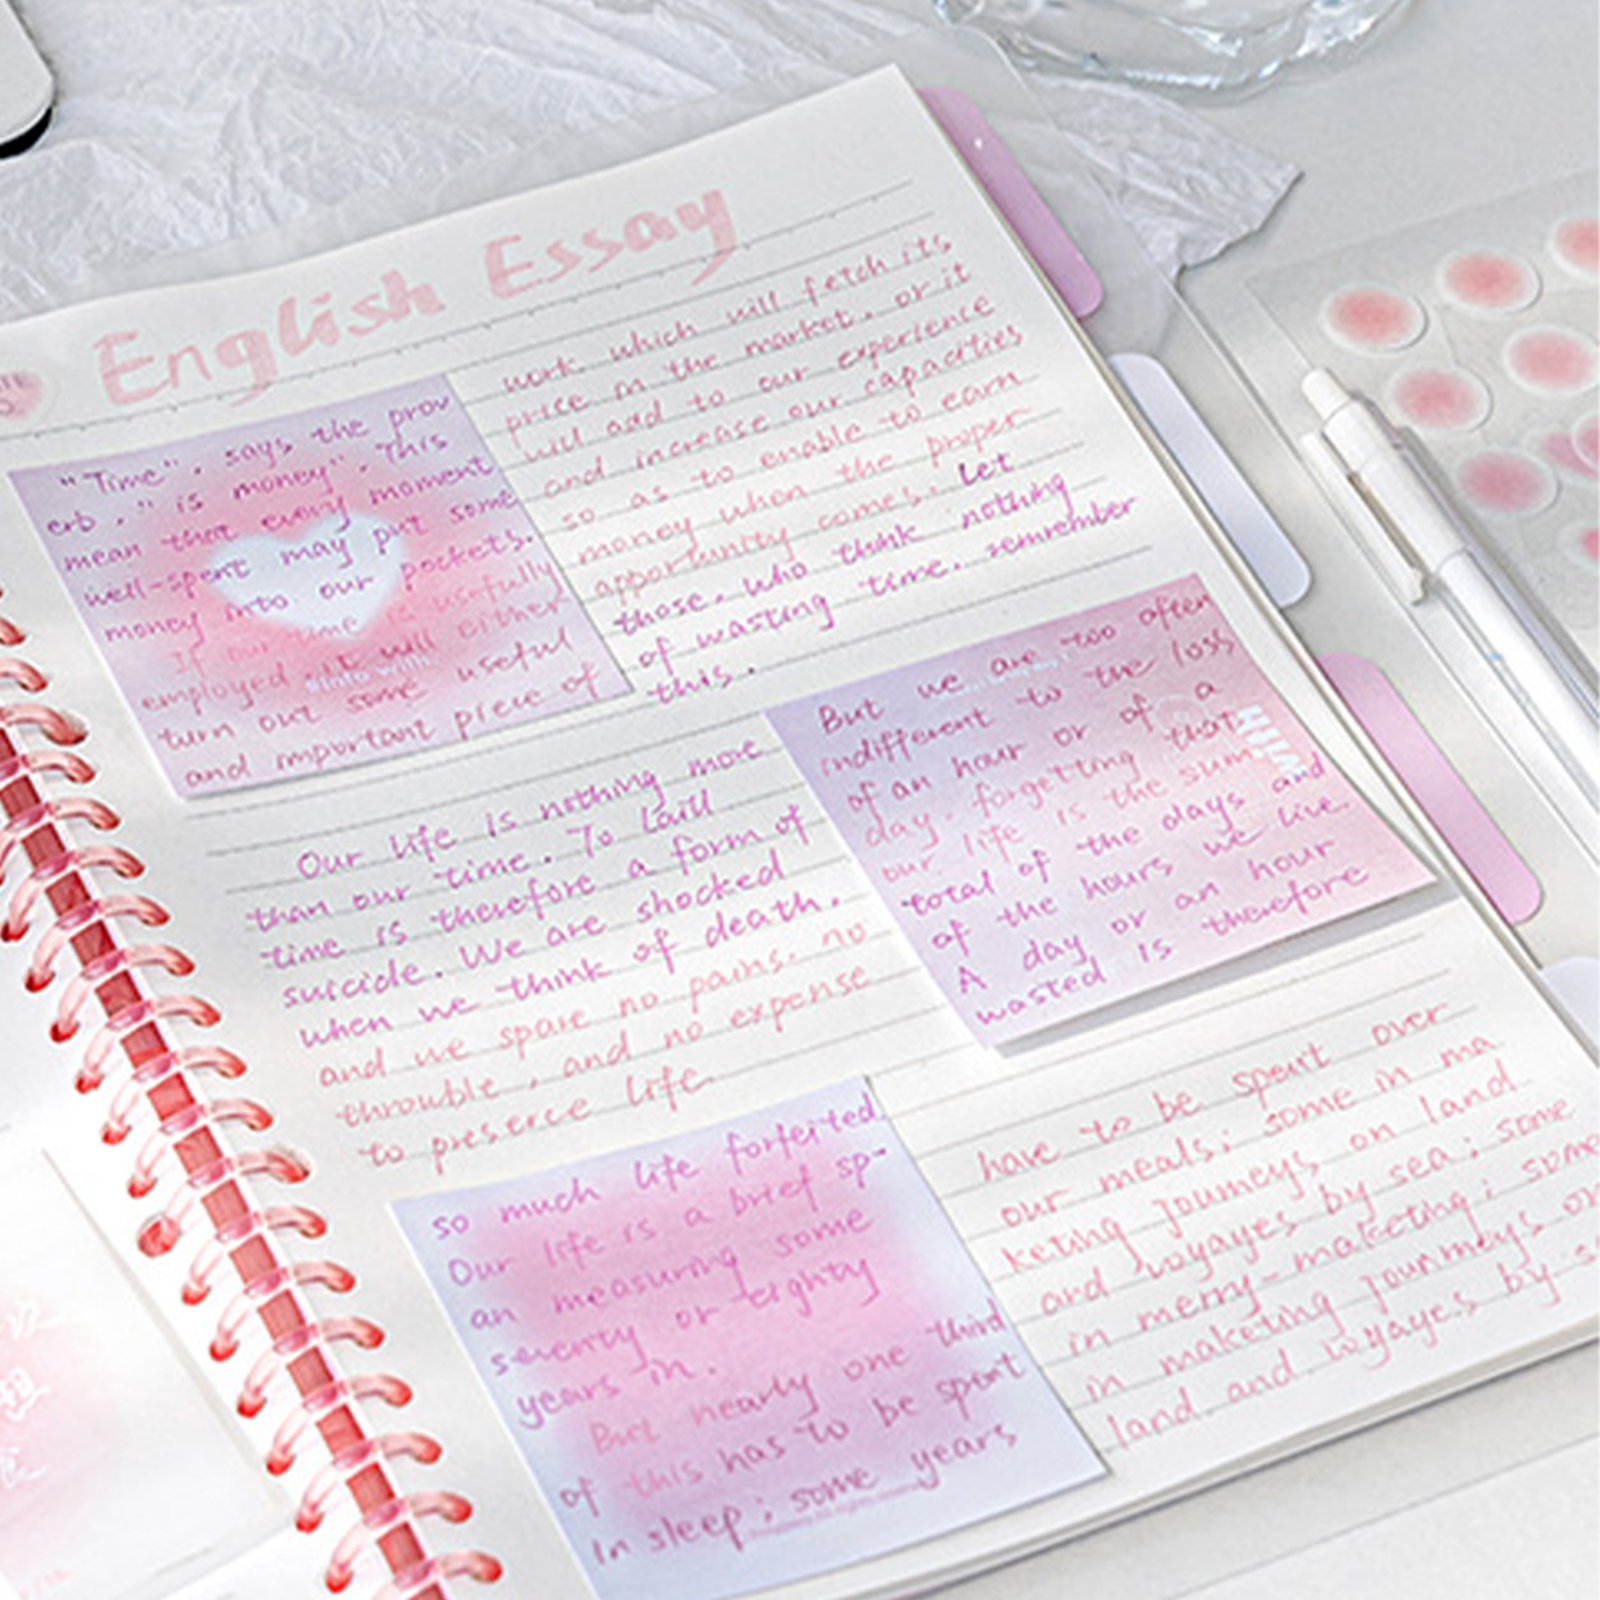 English Essay
"Time", says the prov
erb. " is money". This
mean that every moment
well-spent may put some
money into our pockets.
If our time usefully
employed. It will either
turn out some useful
and important piece of
work which will fetch its
price in the market. or it
will add to our experience
and increase our capacities
so as to enable to earn
money when the proper
opportunity comes. Let
those. who think nothing
of wasting time. remember
this.
Our life is nothing more
than our time. To
time is therefore a form of
suicide. We are shocked
when we think of death.
and we spare no pains. no
throuble, and no expense
to preserce life
But we are too often
indifferent to the loss
of an hour or of a
day. forgetting that
our life is the sum
total of the days and
of the hours we live.
A day or an hour
wasted is therefore
so much life forfeited.
Our life is a brief sp-
an measuring some
seventy or eighty
years in.
But nearly one third
of this has to be spent
in sleep; some years
have to be spent over
our meals; some in ma
keting journeys on land
and voyayes by sea; some
in merry-maketing; some
in maketing journmeys on
land and voyayes by s